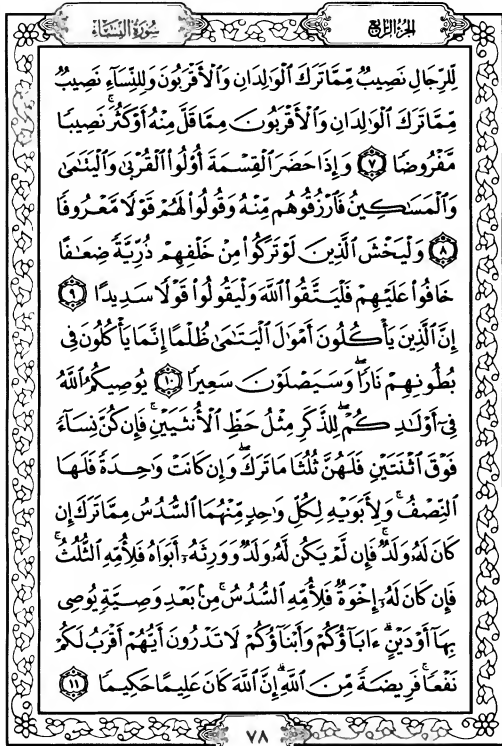 سُورَةُ النِّسَاءِ
الجُزْءُ الرَّابِعُ
لِّلرِّجَالِ نَصِيبٌ مِّمَّا تَرَكَ الْوَالِدَانِ وَالْأَقْرَبُونَ وَلِلنِّسَاءِ نَصِيبٌ
مِّمَّا تَرَكَ الْوَالِدَانِ وَالْأَقْرَبُونَ مِمَّا قَلَّ مِنْهُ أَوْ كَثُرَ ۚ نَصِيبًا
مَّفْرُوضًا ٧ وَإِذَا حَضَرَ الْقِسْمَةَ أُوْلُوا۟ الْقُرْبَىٰ وَالْيَتَٰمَىٰ
وَالْمَسَٰكِينُ فَارْزُقُوهُم مِّنْهُ وَقُولُوا۟ لَهُمْ قَوْلًا مَّعْرُوفًا
٨ وَلْيَخْشَ الَّذِينَ لَوْ تَرَكُوا۟ مِنْ خَلْفِهِمْ ذُرِّيَّةً ضِعَٰفًا
خَافُوا۟ عَلَيْهِمْ فَلْيَتَّقُوا۟ اللَّهَ وَلْيَقُولُوا۟ قَوْلًا سَدِيدًا ٩
إِنَّ الَّذِينَ يَأْكُلُونَ أَمْوَٰلَ الْيَتَٰمَىٰ ظُلْمًا إِنَّمَا يَأْكُلُونَ فِى
بُطُونِهِمْ نَارًا ۖ وَسَيَصْلَوْنَ سَعِيرًا ١٠ يُوصِيكُمُ اللَّهُ
فِىٓ أَوْلَٰدِكُمْ ۖ لِلذَّكَرِ مِثْلُ حَظِّ الْأُنثَيَيْنِ ۚ فَإِن كُنَّ نِسَآءً
فَوْقَ اثْنَتَيْنِ فَلَهُنَّ ثُلُثَا مَا تَرَكَ ۖ وَإِن كَانَتْ وَٰحِدَةً فَلَهَا
النِّصْفُ ۚ وَلِأَبَوَيْهِ لِكُلِّ وَٰحِدٍ مِّنْهُمَا السُّدُسُ مِمَّا تَرَكَ إِن
كَانَ لَهُۥ وَلَدٌ ۚ فَإِن لَّمْ يَكُن لَّهُۥ وَلَدٌ وَوَرِثَهُۥٓ أَبَوَاهُ فَلِأُمِّهِ الثُّلُثُ ۚ
فَإِن كَانَ لَهُۥٓ إِخْوَةٌ فَلِأُمِّهِ السُّدُسُ ۚ مِنۢ بَعْدِ وَصِيَّةٍ يُوصِى
بِهَآ أَوْ دَيْنٍ ۗ ءَابَآؤُكُمْ وَأَبْنَآؤُكُمْ لَا تَدْرُونَ أَيُّهُمْ أَقْرَبُ لَكُمْ
نَفْعًا ۚ فَرِيضَةً مِّنَ اللَّهِ ۗ إِنَّ اللَّهَ كَانَ عَلِيمًا حَكِيمًا ١١
٧٨